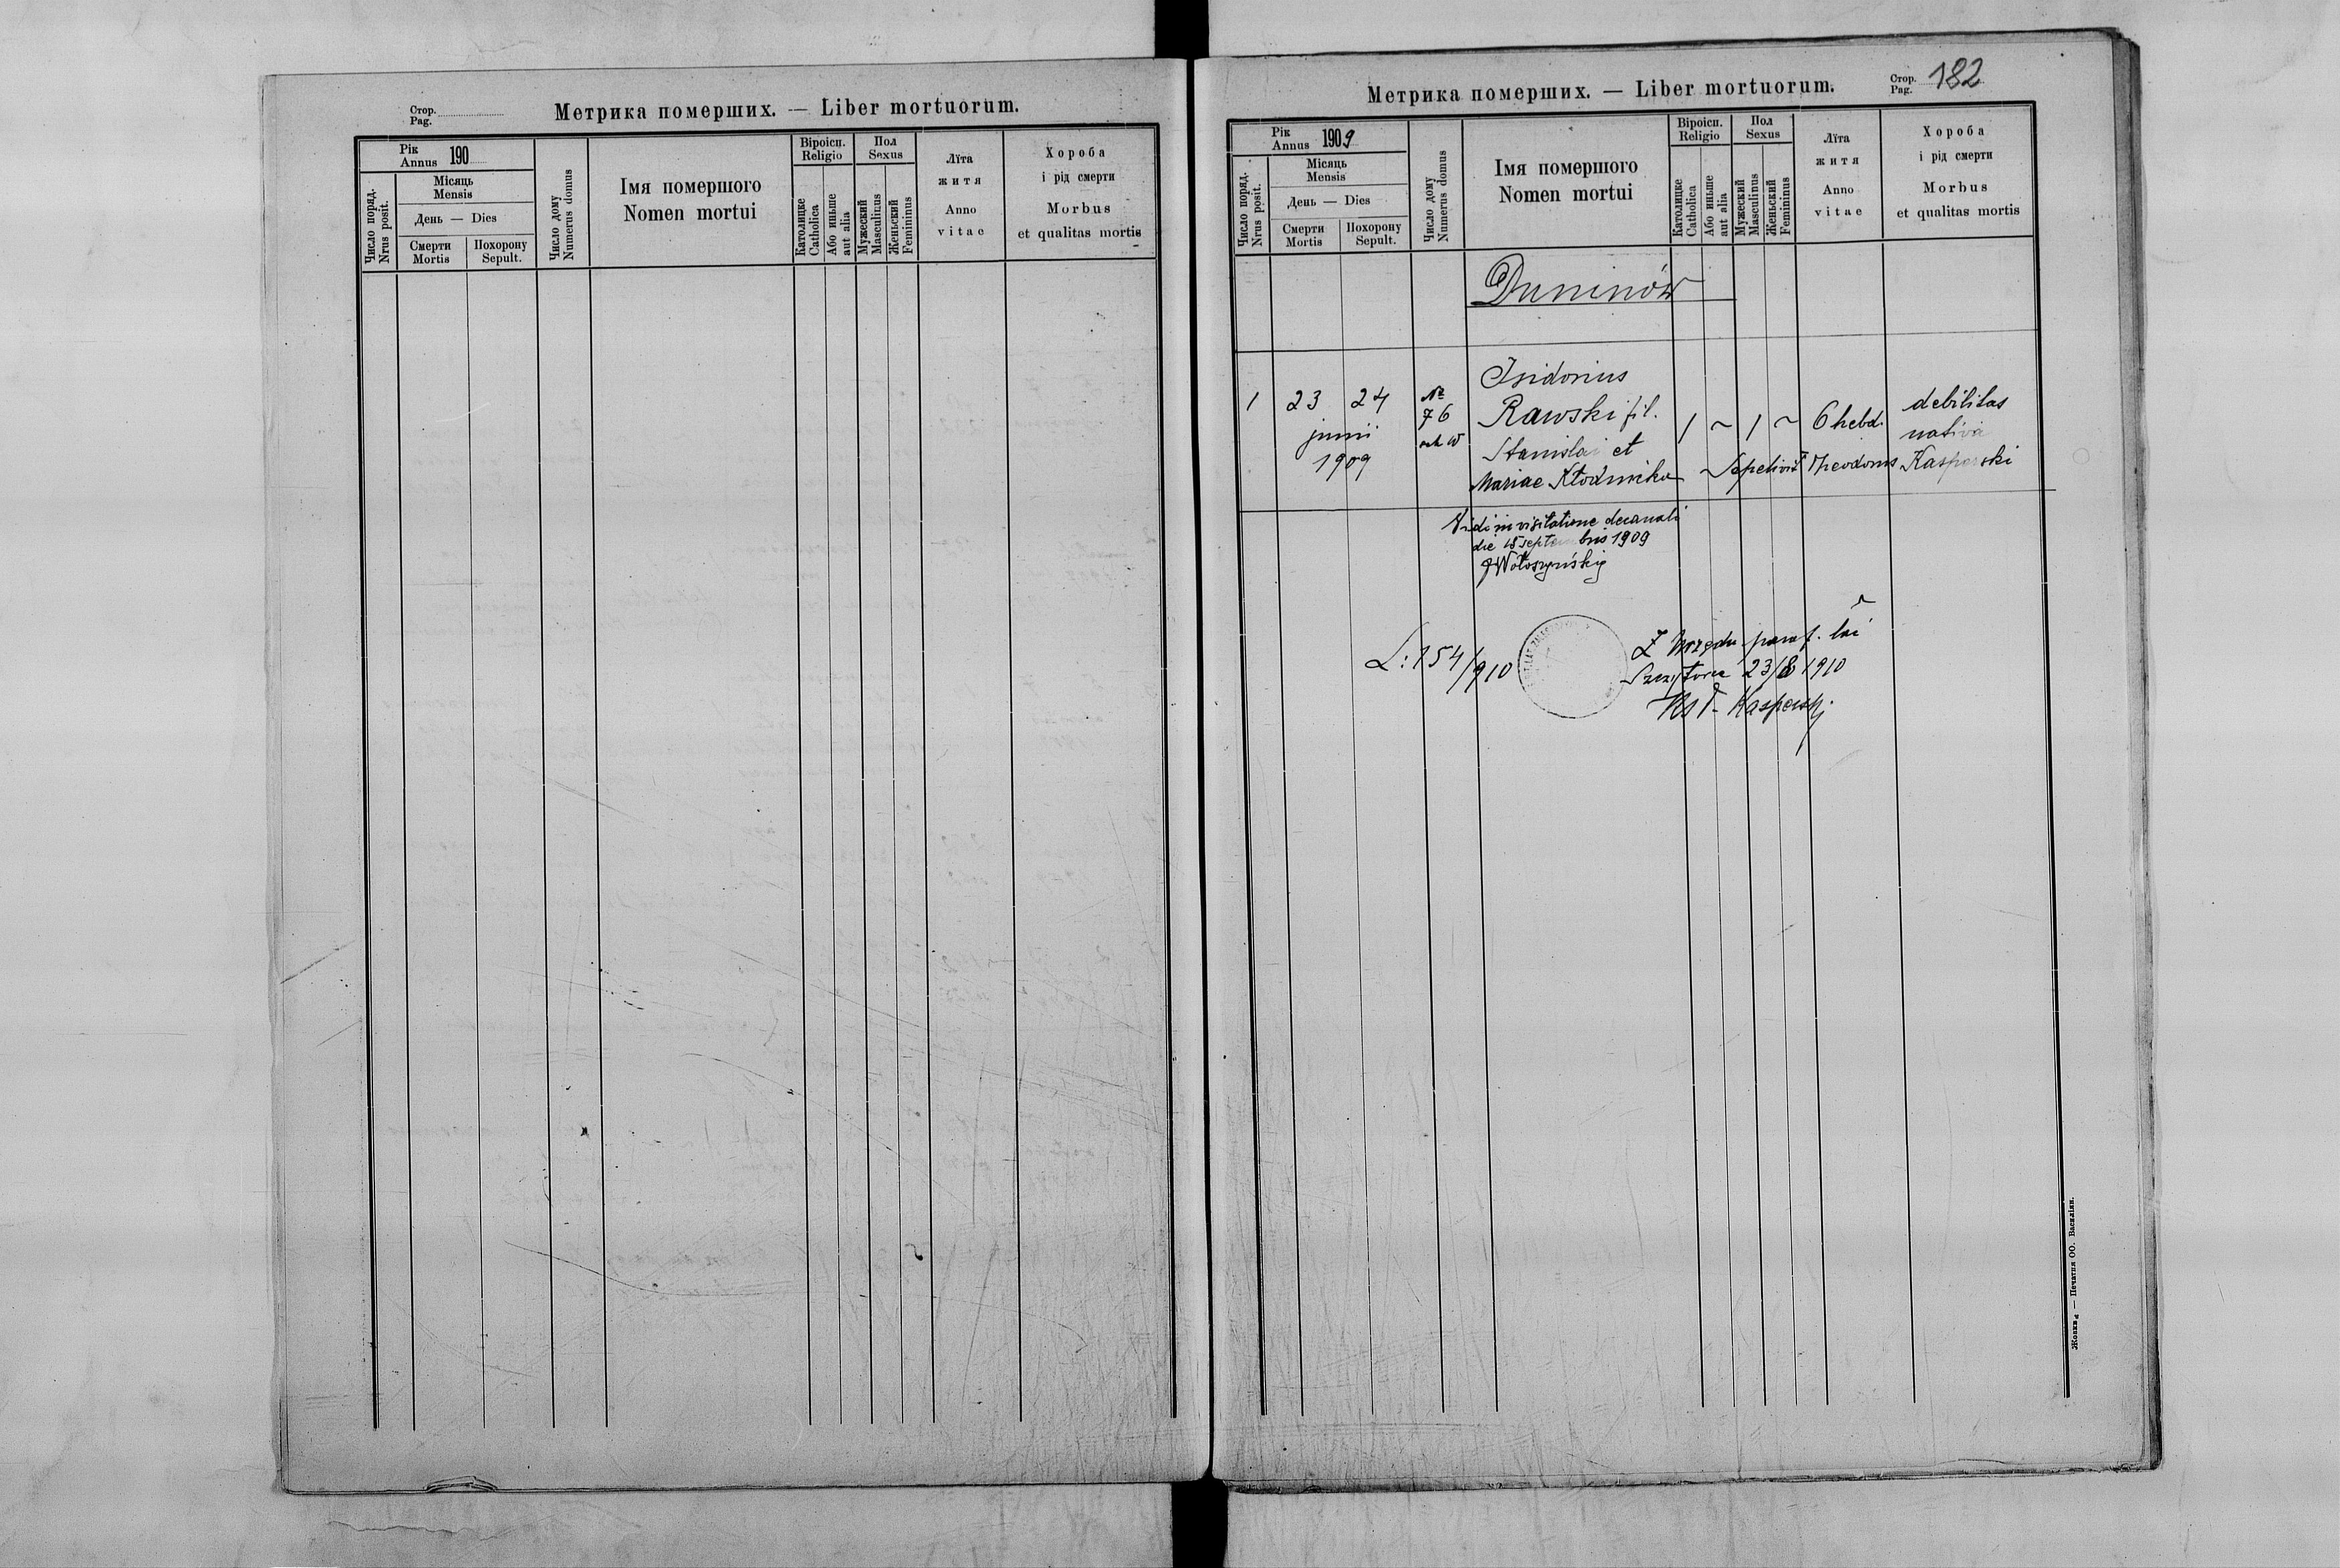 Стор.
Pag.
Метрика померших. — Liber mortuorum.
Рік
Annus 190
Число поряд.
Nrus posit.
Місяць
Mensis
День — Dies
Смерти
Mortis
Похорону
Sepult.
Число дому
Numerus domus
Імя помершого
Nomen mortui
Віроісп.
Religio
Католицке
Catholica
Або иньше
aut alia
Пол
Sexus
Мужеский
Masculinus
Женьский
Femininus
Лїта
житя
Anno
vitae
Хороба
і рід смерти
Morbus
et qualitas mortis
Стор.
Pag. 182
Метрика померших. — Liber mortuorum.
Рік
Annus 1909
Число поряд.
Nrus posit.
Місяць
Mensis
День — Dies
Смерти
Mortis
Похорону
Sepult.
Число дому
Numerus domus
Імя помершого
Nomen mortui
Віроісп.
Religio
Католицке
Catholica
Або иньше
aut alia
Пол
Sexus
Мужеский
Masculinus
Женьский
Femininus
Лїта
житя
Anno
vitae
Хороба
і рід смерти
Morbus
et qualitas mortis
Duninów
1 23 24 junii 1909
№ 76
Isidorius
Rawski fil.
Stanislai et
Mariae
1 ~ 1 ~ 6 hebd.
debilitas
nativa
Sepelivit Theodorus Kasperski
Vidi in visitatione decanali
die 18 septembris 1909
Wołoszyński
L: 154/910
Z Urzędu paraf. łac
23/8 1910
Kasperski
Жовква — Печатня ОО. Василіян.